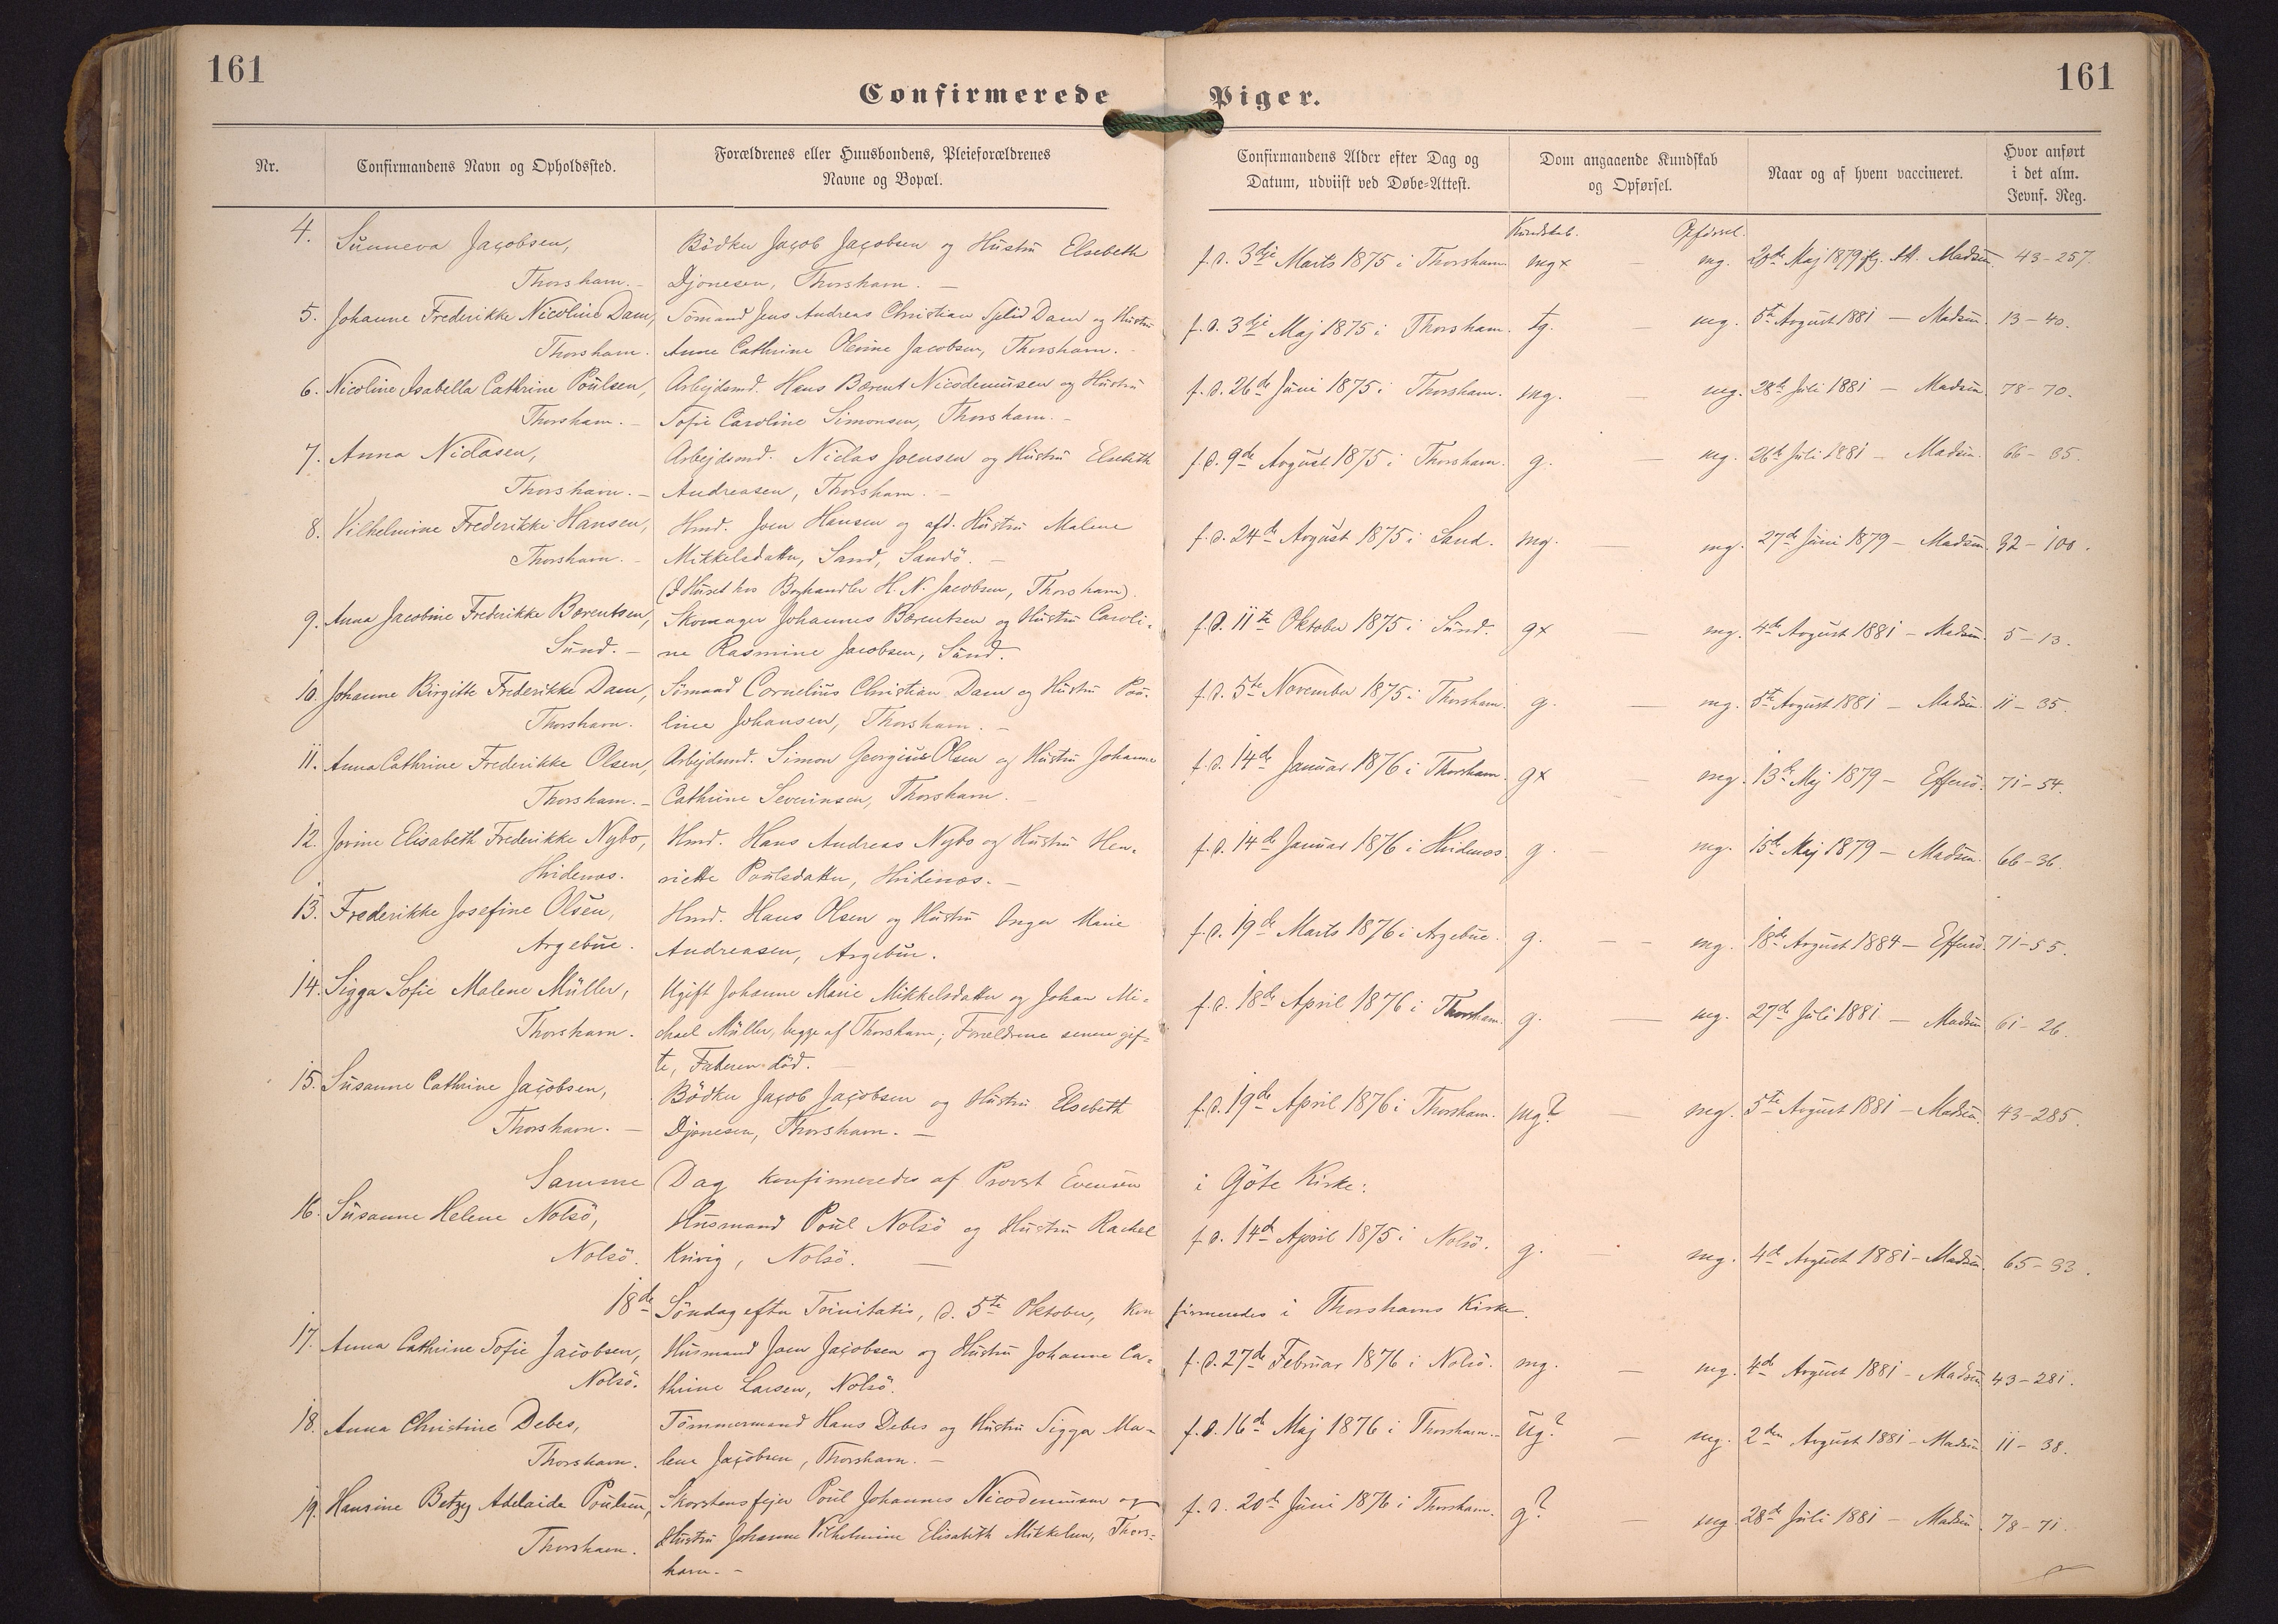 161
161
Confirmerede Piger.
Nr.
Confirmandens Navn og Opholdssted.
Forældrenes eller Huusbondens, Pleieforældrenes
Navne og Bopæl.
Confirmandens Alder efter Dag og
Datum, udviist ved Døbe-Attest.
Dom angaaende Kundskab
og Opførsel.
Naar og af hvem vaccineret.
Hvor anført
i det alm.
Jevnf. Reg.
Kundskab. Opførsel.
4. Sunneva Jacobsen, Bödker Jacob Jacobsen og Hustru Elsebeth f. d. 3die Marts 1875 i Thorshavn. mg× — mg. Maj 1879 Madsen. 43-257.
Thorshavn. — Djonesen, Thorshavn. —
5. Johanne Frederikke Nicoline Dam, Sömand Jens Andreas Christian Splid Dam og Hustru f. d. 3die Maj 1875 i Thorshavn. tg. — mg. 5te August 1881 — Madsen. 13-40.
Thorshavn. Anne Cathrine Olevine Jacobsen, Thorshavn. -
6. Nicoline Isabella Cathrine Poulsen, Arbejdsmd. Hans Bærent Nicodemusen og Hustru f. d. 26de Juni 1875 i Thorshavn. mg. — mg. 28de Juli 1881 — Madsen. 78-70.
Thorshavn. — Sofie Caroline Simonsen, Thorshavn. -
7. Anna Niclasen, Arbejdsmd. Niclas Joensen og Hustru Elsebeth f. d. 9de August 1875 i Thorshavn. g. — mg. 26de Juli 1881 — Madsen. 66-35.
Thorshavn. — Andreasen, Thorshavn. -
8. Vilhelmine Frederikke Hansen, Hmd. Joen Hansen og afd. Hustru Malene f. d. 24de August 1875 i Sand. mg. — mg. 27de Juni 1879 — Madsen. 32-100.
Thorshavn. - Mikkelsdatter, Sand, Sandö. —
(I Huset hos Boghandler H. N. Jacobsen, Thorshavn).
9. Anna Jacobine Frederikke Bærentsen, Skomager Johannes Bærentsen og Hustru Caroli- f. d. 11te Oktober 1875 i Sund. g× — mg. 4de August 1881 — Madsen. 5-13.
Sund. — ne Rasmine Jacobsen, Sund.
10. Johanne Birgitte Frederikke Dam, Sömand Cornelius Christian Dam og Hustru Pou- f. d. 5te November 1875 i Thorshavn. g. — mg. 5te August 1881 — Madsen. 11-35.
Thorshavn. line Johansen, Thorshavn. —
11. Anna Cathrine Frederikke Olsen, Arbejdsmd. Simon Georgius Olsen og Hustru Johanne f. d. 14de Januar 1876 i Thorshavn. g× — mg. 13de Maj 1879 — Effersö. 71-54.
Thorshavn. — Cathrine Severinsen, Thorshavn. —
12. Jovine Elisabeth Frederikke Nybo, Hmd. Hans Andreas Nybo og Hustru Hen- f. d. 14de Januar 1876 i Hvidenæs. g. — mg. 15de Maj 1879 — Madsen. 66-36.
Hvidenæs. riette Poulsdatter, Hvidenæs. —
13. Frederikke Josefine Olsen, Hmd. Hans Olsen og Hustru Inger Marie f. d. 19de Marts 1876 i Argebue. g. — — mg. 18de August 1884 — Effersö. 71-55.
Argebue. Andreasen, Argebue.
14. Sigga Sofie Malene Müller, Ugift Johanne Marie Mikkelsdatter og Johan Mi- f. d. 18de April 1876 i Thorshavn. g. — mg. 27de Juli 1881 — Madsen 61-26.
Thorshavn. chael Müller, begge af Thorshavn; Forældrene senere gif-
te, Faderen död. —
15. Susanne Cathrine Jacobsen, Bödker Jacob Jacobsen og Hustru Elsebeth f. d. 19de April 1876 i Thorshavn. mg? — mg. 5te August 1881 — Madsen. 43-285.
Thorshavn. — Djonesen, Thorshavn. —
Samme Dag konfirmeredes af Provst Evensen i Göte Kirke:
16. Susanne Helene Nolsö, Husmand Poul Nolsö og Hustru Rachel f. d. 14de April 1875 i Nolsö. g. — mg. 4de August 1881 — Madsen. 65-33.
Nolsö. Krivig, Nolsö. —
18de Söndag efter Trinitatis, d. 5te Oktober, konfirmeredes i Thorshavns Kirke.
17. Anna Cathrine Sofie Jacobsen, Husmand Joen Jacobsen og Hustru Johanne Ca- f. d. 27de Februar 1876 i Nolsö. mg. — mg. 4de August 1881 — Madsen. 43-281.
Nolsö. thrine Larsen, Nolsö.
18. Anna Christine Debes, Tömmermand Hans Debes og Hustru Sigga Ma- f. d. 16de Maj 1876 i Thorshavn. — ug? — mg. 2den August 1881 — Madsen 11-38.
Thorshavn. lene Jacobsen, Thorshavn. —
19. Hansine Betzy Adelaide Poulsen, Skorstensfejer Poul Johannes Nicodemusen og f. d. 20de Juni 1876 i Thorshavn. g? — mg. 28de Juli 1881 — Madsen. 78-71.
Thorshavn. Hustru Johanne Vilhelmine Elisabeth Mikkelsen, Thors-
havn. -